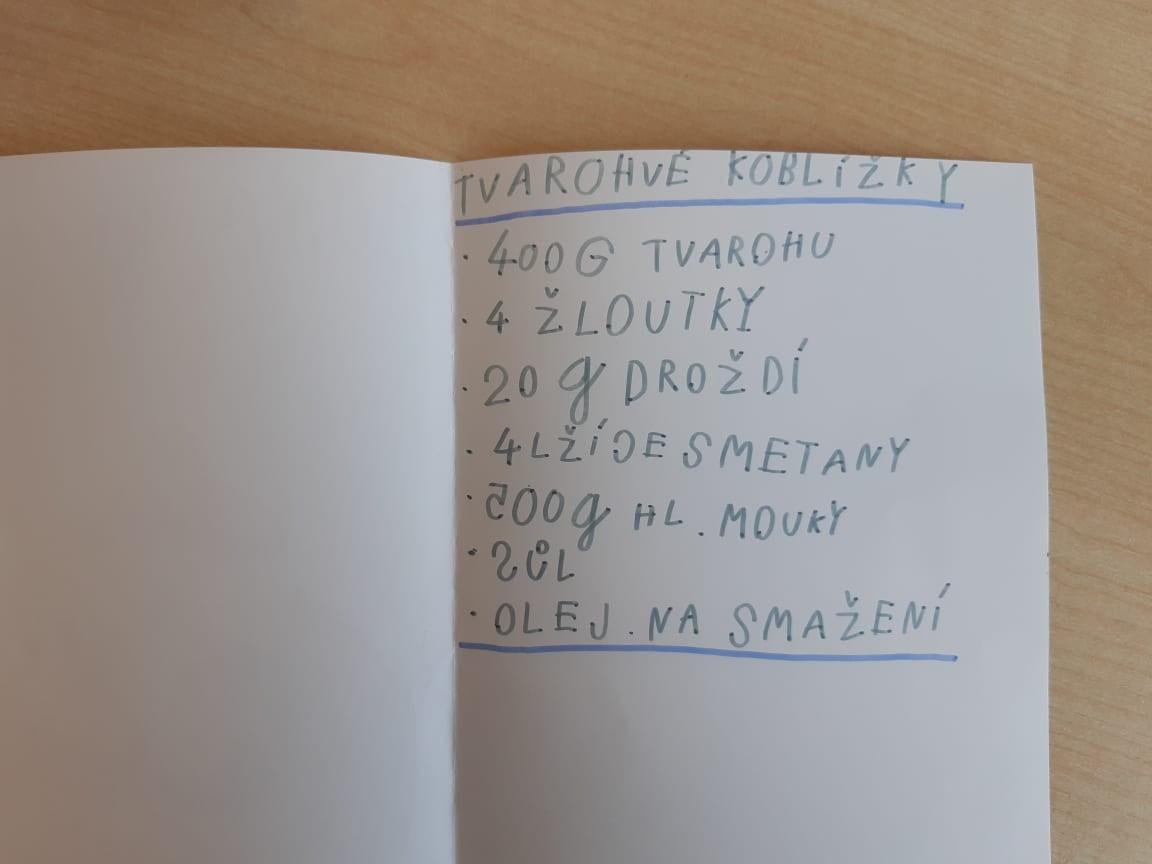 TVAROHVÉ KOBLÍŽKY
· 400G TVAROHU
· 4 ŽLOUTKY
· 20 g DROŽDÍ
· 4 LŽÍCE SMETANY
· 500g HL. MOUKY
· SŮL
· OLEJ NA SMAŽENÍ